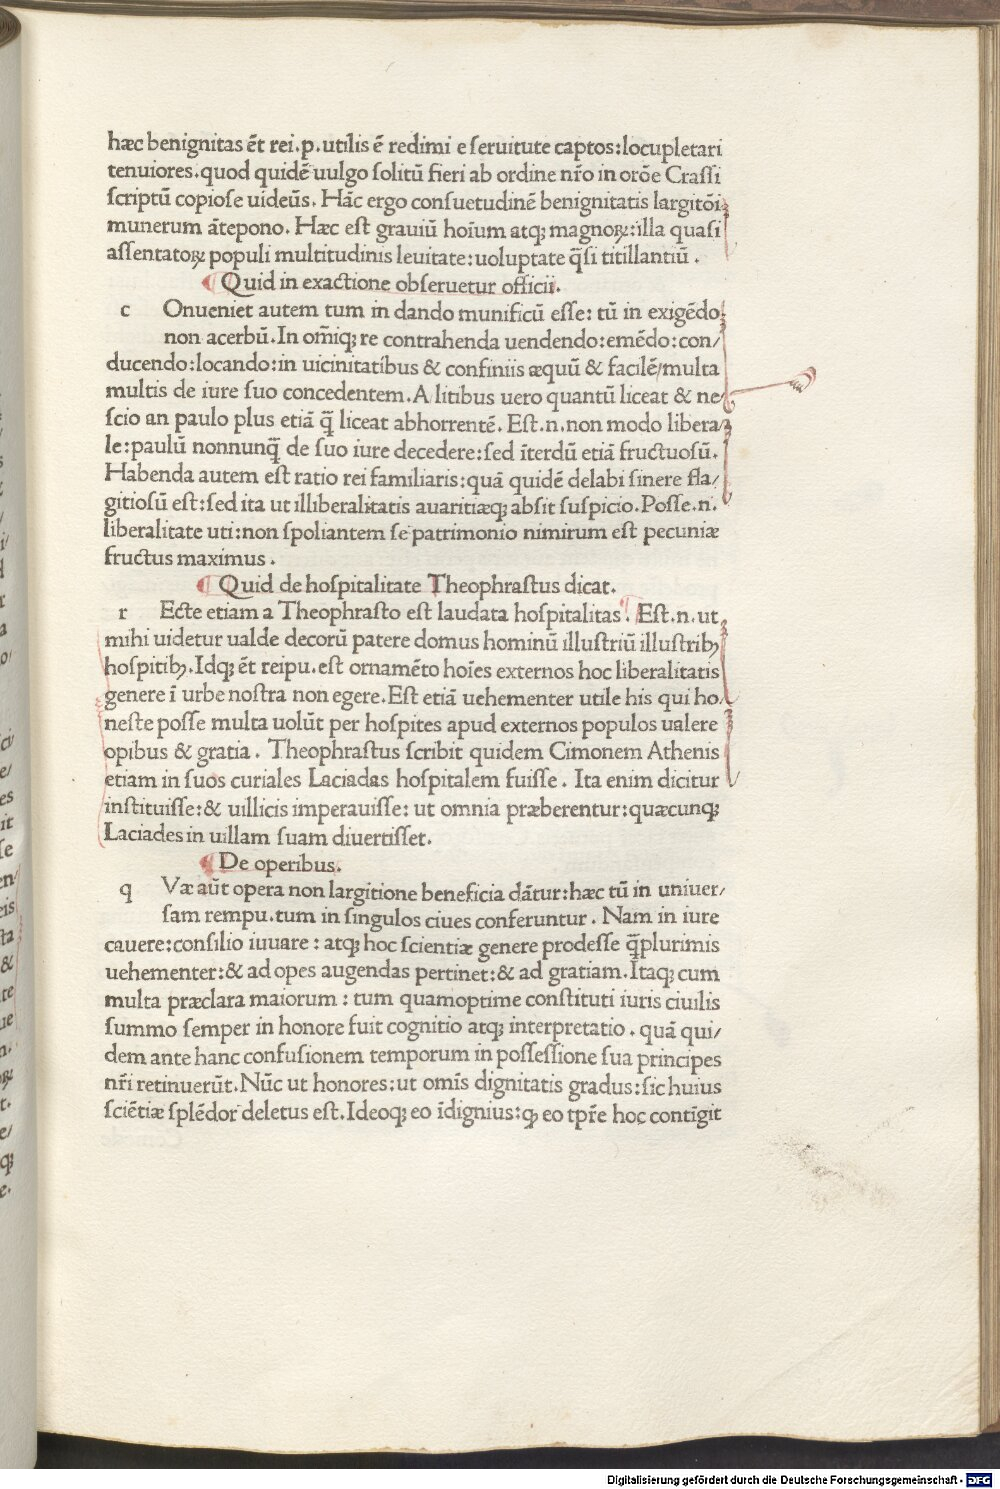 hæc benignitas ēt rei.p.utilis ē redimi e seruitute captos:locupletari
tenuiores.quod quidē uulgo solitū fieri ab ordine nr̄o in orōe Crassi
scriptū copiose uidēus. Hāc ergo consuetudinē benignitatis largitōi
munerum āтepono. Hæc est grauiū hoīum atqꝫ magnoꝝ:illa quasi
assentatoꝝ populi multitudinis leuitate:uoluptate q̄si titillantiū.
Quid in exactione obseruetur officii.
c Onueniet autem tum in dando munificū esse: tū in exigēdo
non acerbū.In om̄iqꝫ re contrahenda uendendo:emēdo:con/
ducendo:locando:in uicinitatibus & confiniis æquū & facilē/multa
multis de iure suo concedentem.A litibus uero quantū liceat & ne
scio an paulo plus etiā q̄ liceat abhorrentē. Est.n.non modo libera
le:paulū nonnunq̄ de suo iure decedere:sed īterdū etiā fructuosū.
Habenda autem est ratio rei familiaris:quā quidē delabi sinere fla/
gitiosū est:sed ita ut illiberalitatis auaritiæqꝫ absit suspicio.Posse.n.
liberalitate uti:non spoliantem se patrimonio nimirum est pecuniæ
fructus maximus.
Quid de hospitalitate Theophrastus dicat.
r Ecte etiam a Theophrasto est laudata hospitalitas. Est.n.ut
mihi uidetur ualde decorū patere domus hominū illustriū illustribꝫ
hospitibꝫ.Idqꝫ ēt reipu.est ornamēto hoīes externos hoc liberalitatis
genere ī urbe nostra non egere.Est etiā uehementer utile his qui ho
neste posse multa uolūt per hospites apud externos populos ualere
opibus & gratia. Theophrastus scribit quidem Cimonem Athenis
etiam in suos curiales Laciadas hospitalem fuisse. Ita enim dicitur
instituisse:& uillicis imperauisse: ut omnia præberentur:quæcunqꝫ
Laciades in uillam suam diuertisset.
De operibus.
q Væ aūt opera non largitione beneficia dātur:hæc tū in uniuer/
sam rempu.tum in singulos ciues conferuntur. Nam in iure
cauere:consilio iuuare: atqꝫ hoc scientiæ genere prodesse q̄plurimis
uehementer:& ad opes augendas pertinet:& ad gratiam.Itaqꝫ cum
multa præclara maiorum: tum quamoptime constituti iuris ciuilis
summo semper in honore fuit cognitio atqꝫ interpretatio. quā qui/
dem ante hanc confusionem temporum in possessione sua principes
nr̄i retinuerūt.Nūc ut honores:ut omīs dignitatis gradus:sic huius
sciētiæ splēdor deletus est.Ideoqꝫ eo īdignius:qꝫ eo tpr̄e hoc contīgit
Digitalisierung gefördert durch die Deutsche Forschungsgemeinschaft - DFG